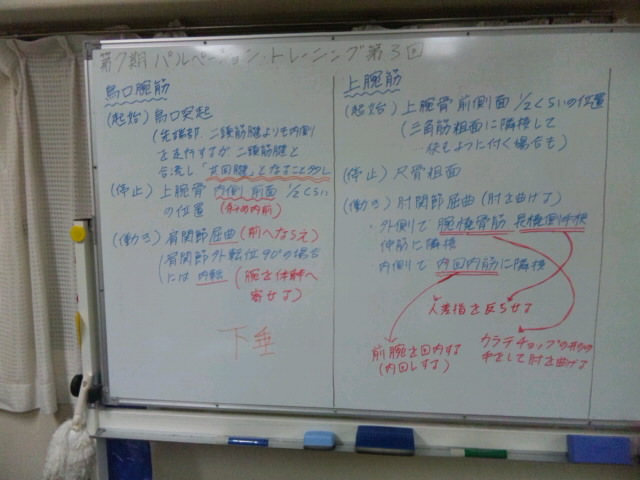 第7期 パルペーション・トレーニング第3回
烏口腕筋
(起始) 烏口突起
(先端部 二頭筋腱よりも内側
を走行するが二頭筋腱と
合流し「共同腱」となること多し
(停止) 上腕骨 内側前面 1/2くらい
の位置 (斜め内前)
(働き) 肩関節屈曲 (前へならえ)
(肩関節外転位90°の場合
には 内転 (腕を体幹へ
寄せる)
下垂
上腕筋
(起始) 上腕骨前側面 1/2くらいの位置
(三角筋粗面に隣接して
挟むように付く場合も)
(停止) 尺骨粗面
(働き) 肘関節屈曲 (肘を曲げる)
・外側で 腕橈骨筋 長橈側手根
伸筋に隣接
内側で 円回内筋に隣接
人差指を反らせる
前腕を回内する
(内回しする)
カラテチョップの形の
手をして肘を曲げる